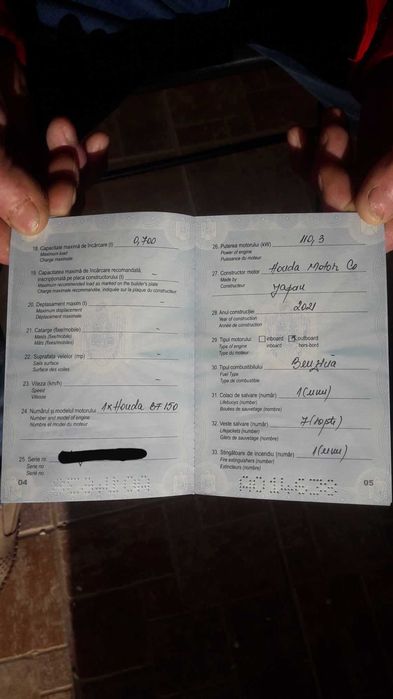 18. Capacitate maximă de încărcare (t) 0,700
Maximum load
Charge maximale
19. Capacitatea maximă de încărcare recomandată,
inscripționată pe placa constructorului (t) –
Maximum recommended load as marked on the builder's plate
Charge maximale recomandée, indiquée sur la plaque du constructeur
20. Deplasament maxim (t) –
Maximum displacement
Déplacement maximale
21. Catarge (fixe/mobile) –
Masts (fixe/mobile)
Mâts (fixe/mobile)
22. Suprafața velelor (mp) –
Sails surface
Surface des voiles
23. Viteza (km/h) –
Speed
Vitesse
24. Numărul și modelul motorului 1x Honda BF 150
Number and model of engine
Nombre et model du moteur
25. Serie nr.
Serie no
Serie no.
04
26. Puterea motorului (kW) 110,3
Power of engine
Puissance du moteur
27. Constructor motor Honda Motor Co
Made by
Constructeur
Japan
28. Anul construcției 2021
Year of construction
Année de construction
29. Tipul motorului inboard outboard
Type of engine inboard hors-bord
Type du moteur
30. Tipul combustibilului
Fuel Type
Type de combustible
31. Colaci de salvare (număr) 1 (unu)
Lifebuoys (number)
Bouées de sauvetage (nombre)
32. Veste salvare (număr) 7 (șapte)
Lifejackets (number)
Gilets de sauvetage (nombre)
33. Stingătoare de incendiu (număr) 1 (unu)
Fire extinguishers (number)
Extincteurs (nombre)
A014638
05